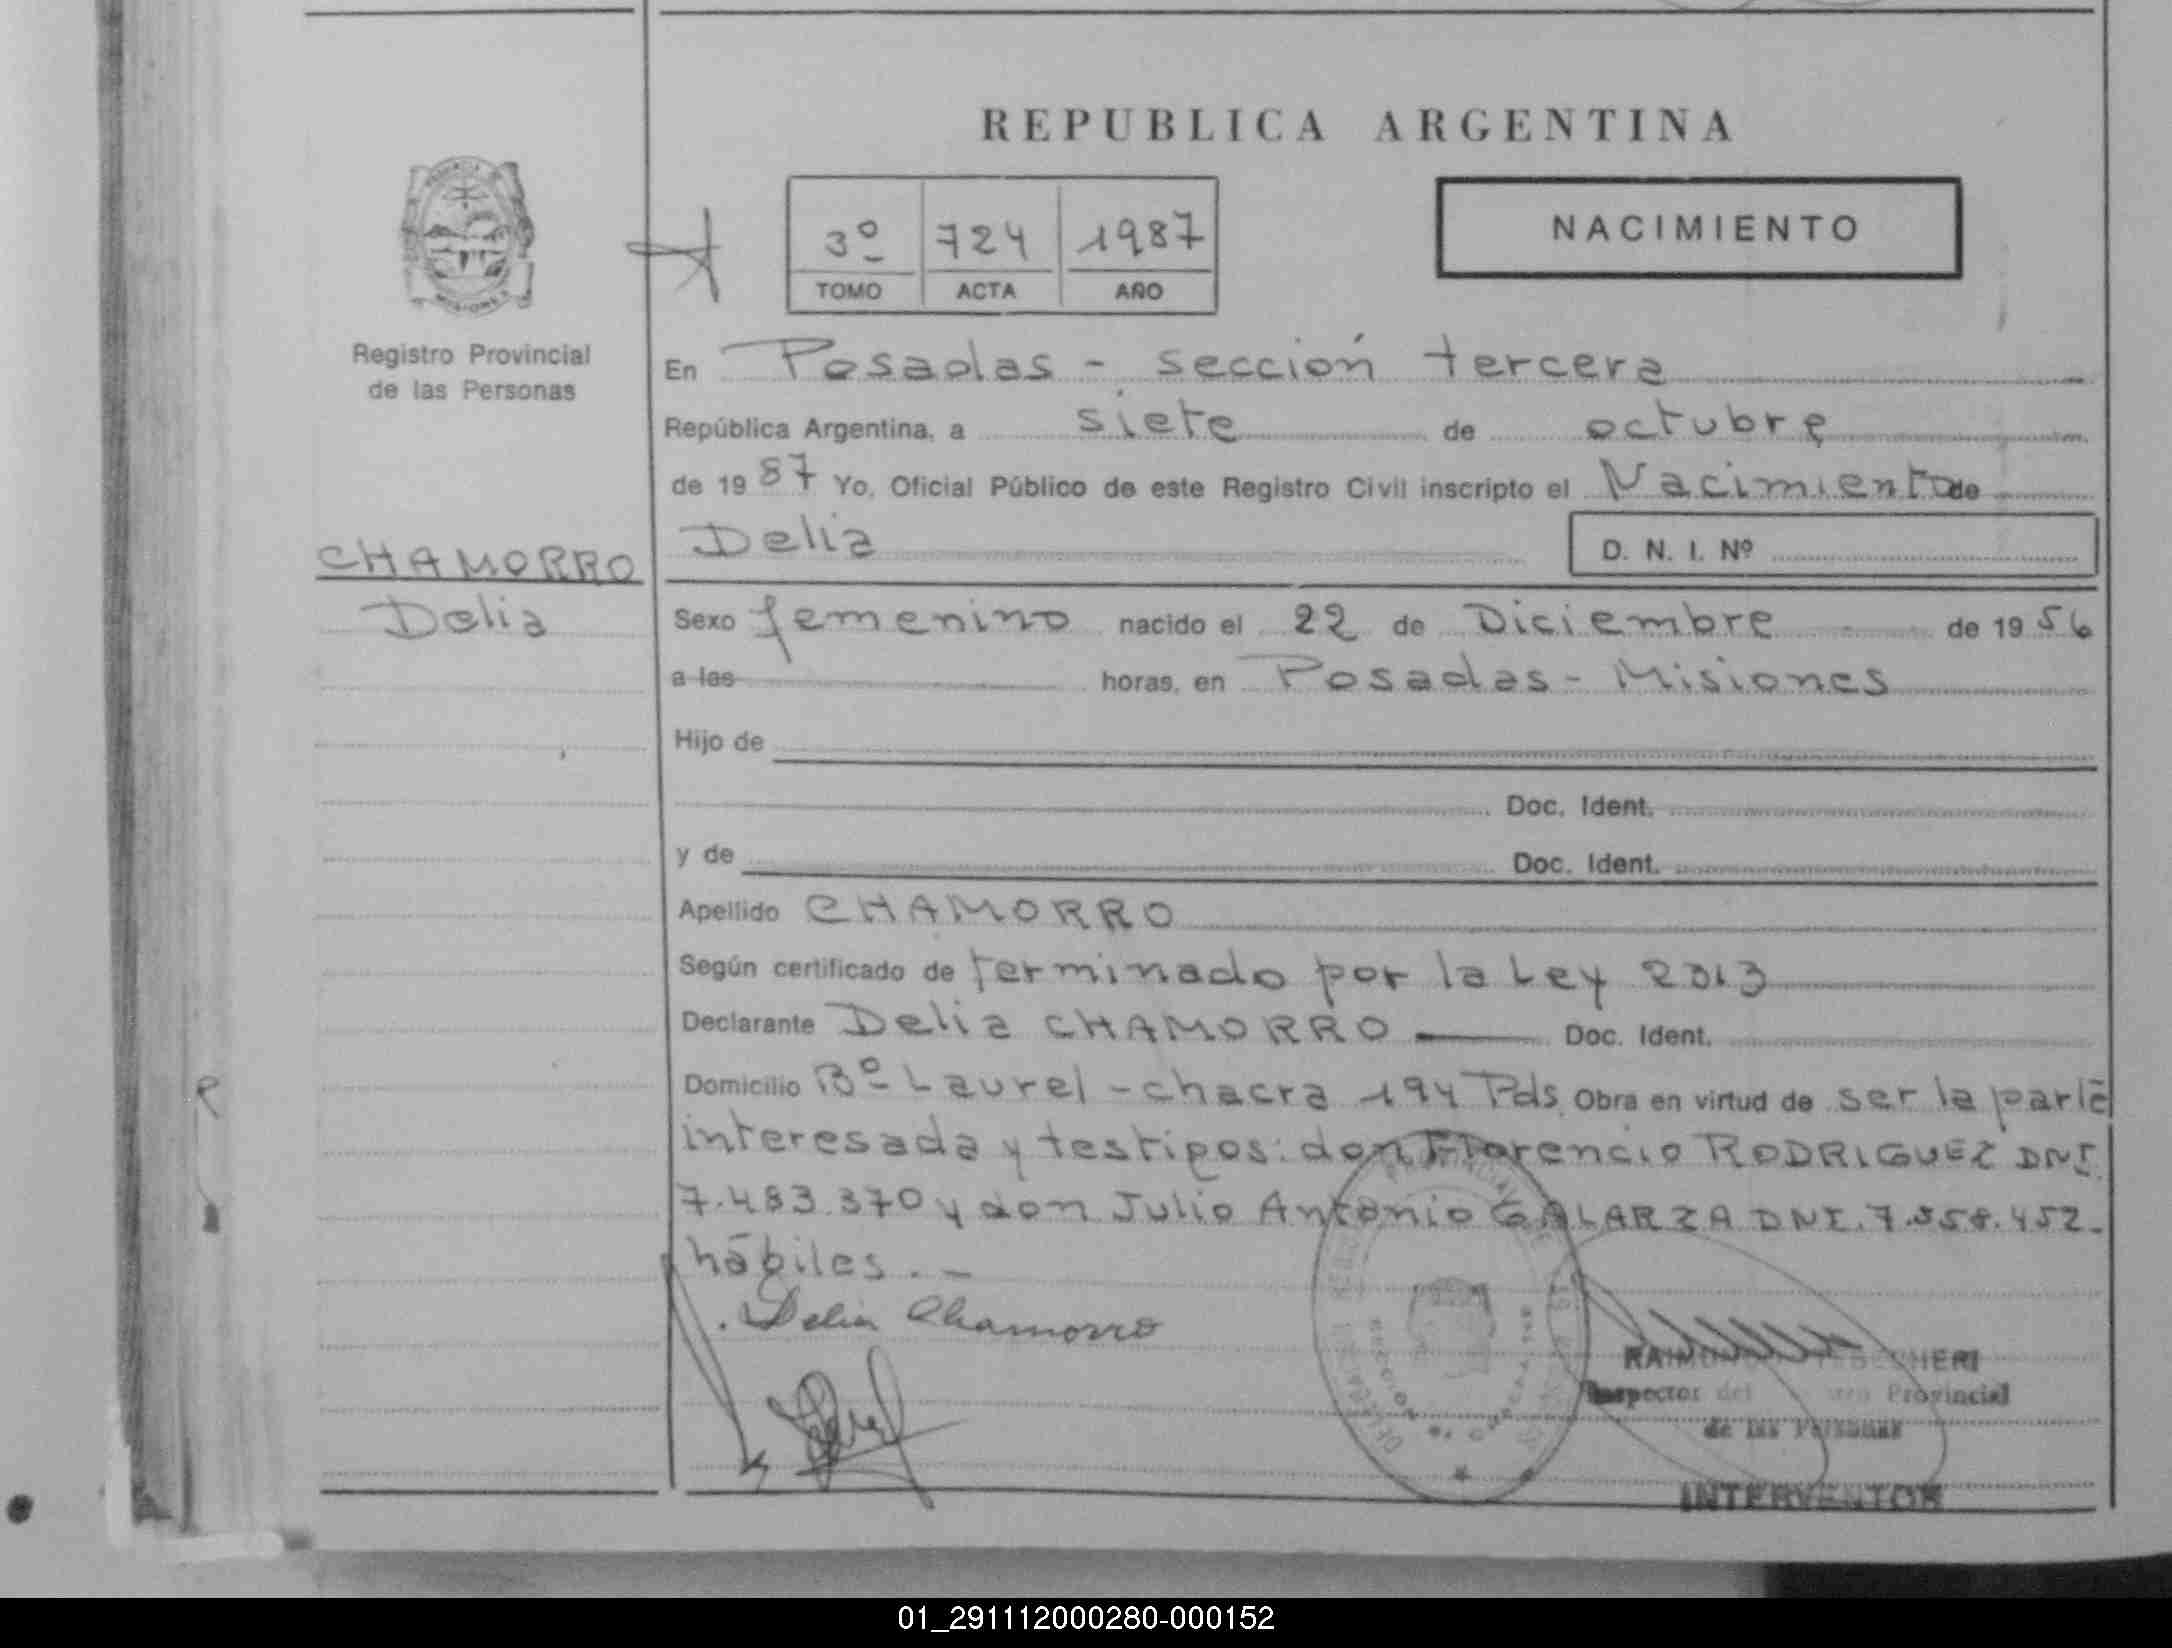 REPUBLICA ARGENTINA
NACIMIENTO
3º 724 1987
TOMO ACTA AÑO
Registro Provincial
de las Personas
En Posadas - sección tercera
República Argentina, a siete de octubre
de 1987 Yo, Oficial Público de este Registro Civil inscripto el Nacimiento de
Delia D. N. I. Nº
CHAMORRO
Delia
Sexo femenino nacido el 22 de Diciembre de 1956
a las horas, en Posadas - Misiones
Hijo de
Doc. Ident.
y de Doc. Ident.
Apellido CHAMORRO
Según certificado de terminado por la Ley 2013
Declarante Delia CHAMORRO Doc. Ident.
Domicilio Bº Laurel - chacra 194 Pds. Obra en virtud de ser la parte
interesada y testigos: don Florencio RODRIGUEZ DNI.
7.483.370 y don Julio Antonio GALARZA DNI. 7.558.452.
hábiles. -
Delia Chamorro
Inspector del Provincial
de las Personas
INTERVENTOR
01_291112000280-000152